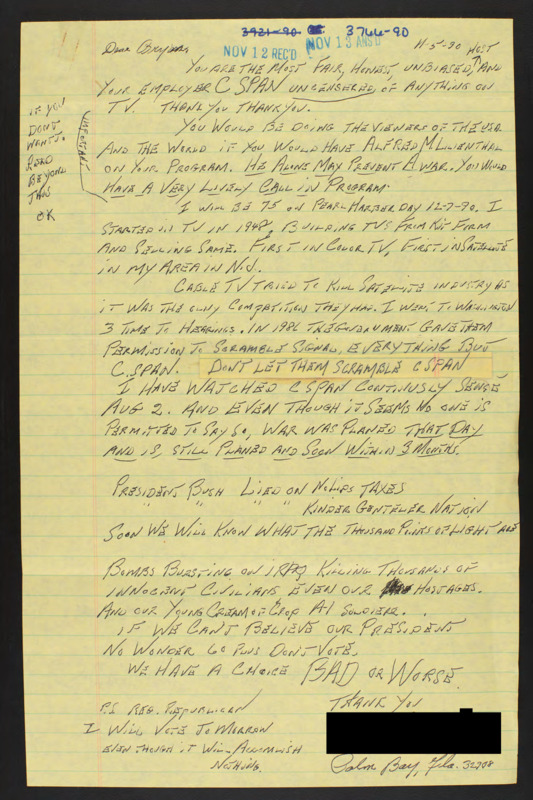 3921-90 3766-90
NOV 12 REC'D NOV 13 ANS'D
11-5-90
Dear Bryan,
YOU ARE THE MOST FAIR, HONEST, UNBIASED, HOST AND
YOUR EMPLOYER C SPAN UNCENSORED OF ANYTHING ON
TV. THANK YOU THANK YOU.
YOU WOULD BE DOING THE VIEWERS OF THE USA
AND THE WORLD IF YOU WOULD HAVE ALFRED M LILIENTHAL
ON YOUR PROGRAM. HE ALONE MAY PREVENT A WAR. YOU WOULD
HAVE A VERY LIVELY CALL IN PROGRAM.
IF YOU
DONT
WANT TO
READ
BEYOND
THIS
OK
IMPORTANT
I WILL BE 75 ON PEARL HARBER DAY 12-7-90. I
STARTED IN TV IN 1948, BUILDING TVS FROM KIT FORM
AND SELLING SAME. FIRST IN COLOR TV, FIRST IN SATELITE
IN MY AREA IN N.J.
CABLE TV TRIED TO KILL SATELITE INDUSTRY AS
IT WAS THE ONLY COMPETITION THEY HAD. I WENT TO WASHINGTON
3 TIME TO HEARINGS. IN 1986 THE GOVERNMENT GAVE THEM
PERMISSION TO SCRAMBLE SIGNAL, EVERYTHING BUT
C.SPAN. DON'T LET THEM SCRAMBLE C SPAN
I HAVE WATCHED C SPAN CONTINUSLY SENSE
AUG 2. AND EVEN THOUGH IT SEEMS NO ONE IS
PERMITTED TO SAY SO, WAR WAS PLANED THAT DAY
AND IS, STILL PLANED AND SOON WITHIN 3 MONTHS.
PRESIDENT BUSH LIED ON NO LIPS TAXES
" " " " KINDER GENTELER NATION
SOON WE WILL KNOW WHAT THE THOUSAND POINTS OF LIGHT ARE
BOMBS BURSTING ON IRAQ KILLING THOUSANDS OF
INNOCENT CIVILIANS EVEN OUR HOSTAGES.
AND OUR YOUNG CREAM OF CROP A1 SOLDIERS.
IF WE CAN'T BELIEVE OUR PRESIDENT
NO WONDER 60 PLUS DONT VOTE.
WE HAVE A CHOICE BAD OR WORSE
THANK YOU
P.S REG. REPUBLICAN
I WILL VOTE TO MORROW
EVEN THOUGH IT WILL ACCOMLISH
NOTHING.
Palm Bay, Fla. 32908